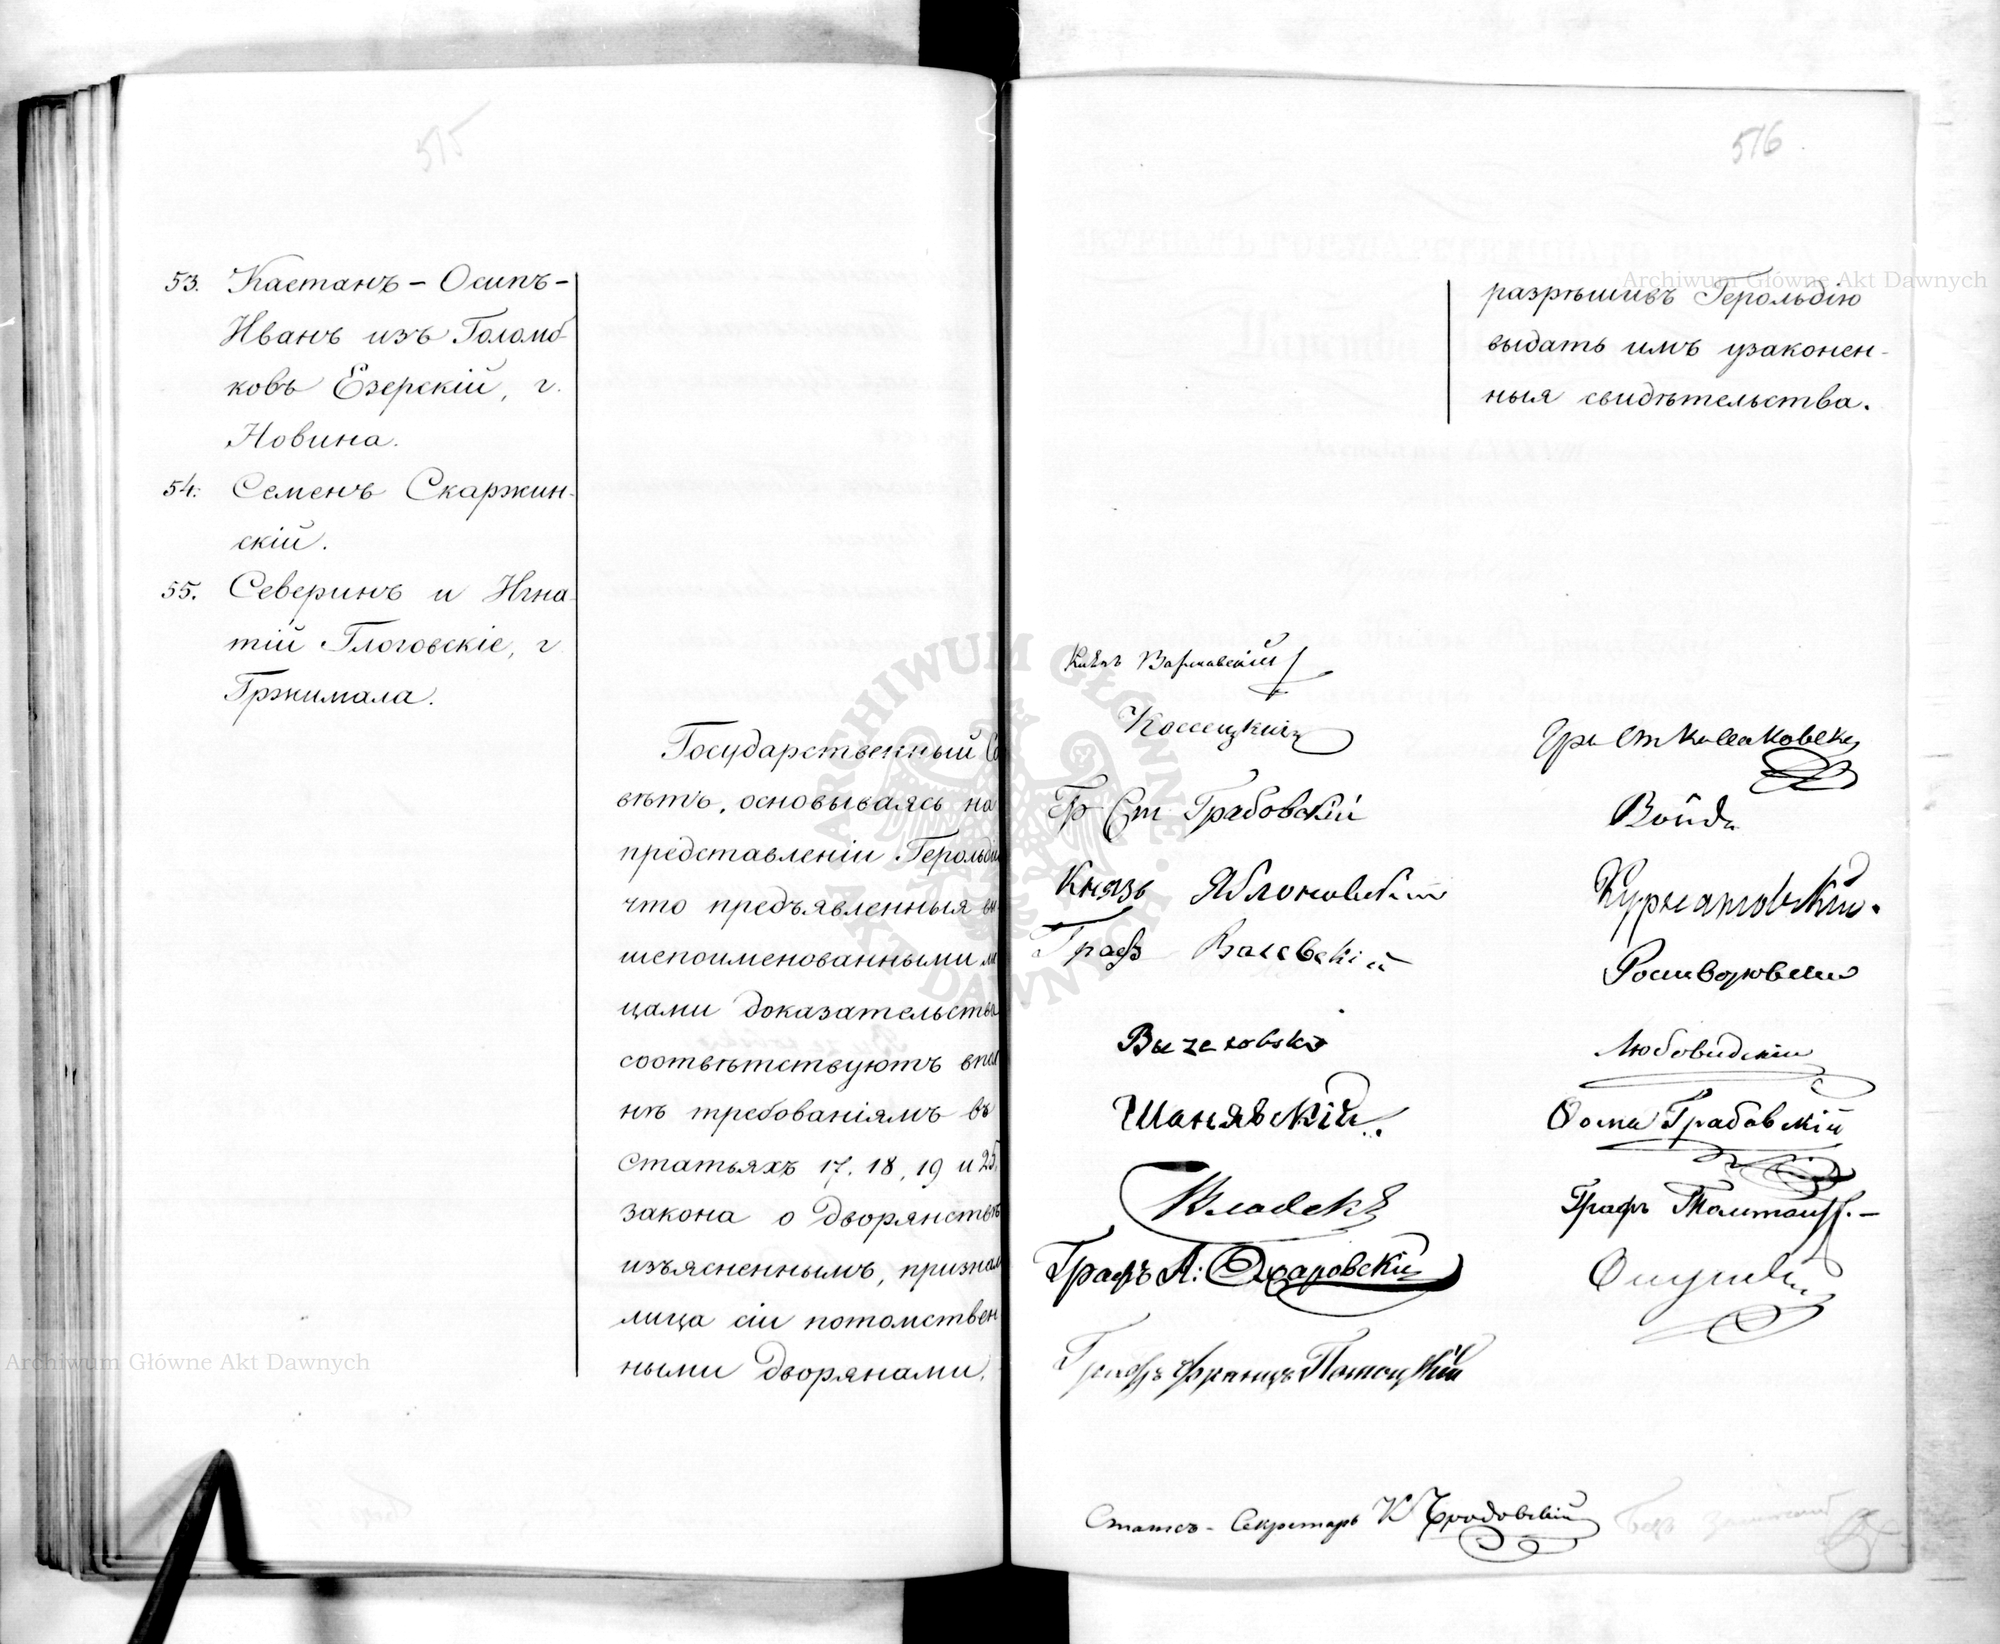 515
53. Каетанъ – Осипъ –
Иванъ изъ Голомб-
ковъ Езерскій, г.
Новина.
54. Семенъ Скаржин-
скій.
55. Северинъ и Игна-
тій Глоговскіе, г.
Гржимала.
Государственный Со
вѣтъ, основываясь на
представленіи Герольдіи
что предъявленныя вы-
шепоименованными ли
цами доказательства
соотвѣтствуютъ впол
нѣ требованіямъ въ
статьяхъ 17, 18, 19 и 25
закона о Дворянствѣ
изъясненнымъ, призналъ
лица сіи потомствен
ными Дворянами,
516
разрѣшивъ Герольдію
выдать имъ узаконен-
ныя свидѣтельства.
Князь Варшавскій
Коссецкій
Гр Ст Грабовскій
Князь Яблоновскій
Графъ Валевскій
Вычеховскій
Шанявскій
Владекъ
Графъ А: Ожаровскій
Графъ Францъ Потоцкій
Гр Ст Коссаковскій
Война
Курнатовскій.
Ростворовскій
Любовидскій
Ѳома Грабовскій
Графъ
Статсъ – Секретарь К Бродовскій
Archiwum Główne Akt Dawnych
Archiwum Główne Akt Dawnych
ARCHIWUM GŁÓWNE AKT DAWNYCH